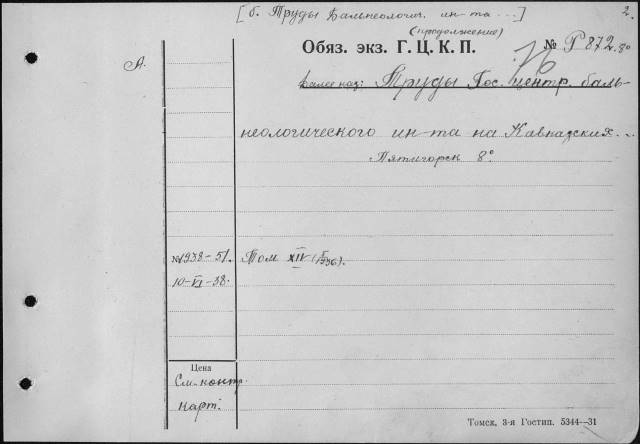 [б. Труды Бальнеологич. ин-та ...]
2.
(продолжение)
Обяз. экз. Г. Ц. К. П.
№ Р 872. 8º
А.
далее наз: Труды Гос. центр. баль-
неологического ин-та на Кавказских ..
Пятигорск 8º
№1938-51. Том XIV (1936).
10-VI-38.
Цена
См. контр.
карт.
Томск, 3-я Гостип. 5344—31